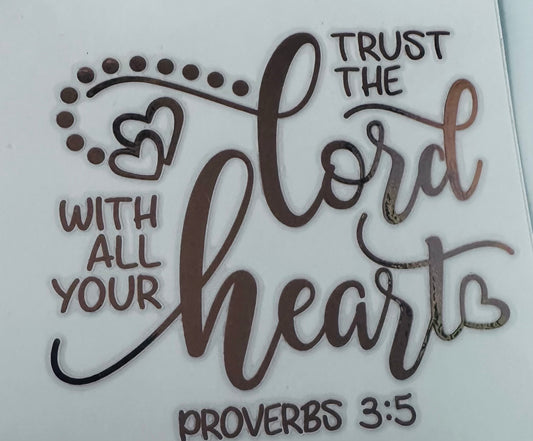 TRUST
THE
lord
WITH
ALL
YOUR
heart
PROVERBS 3:5